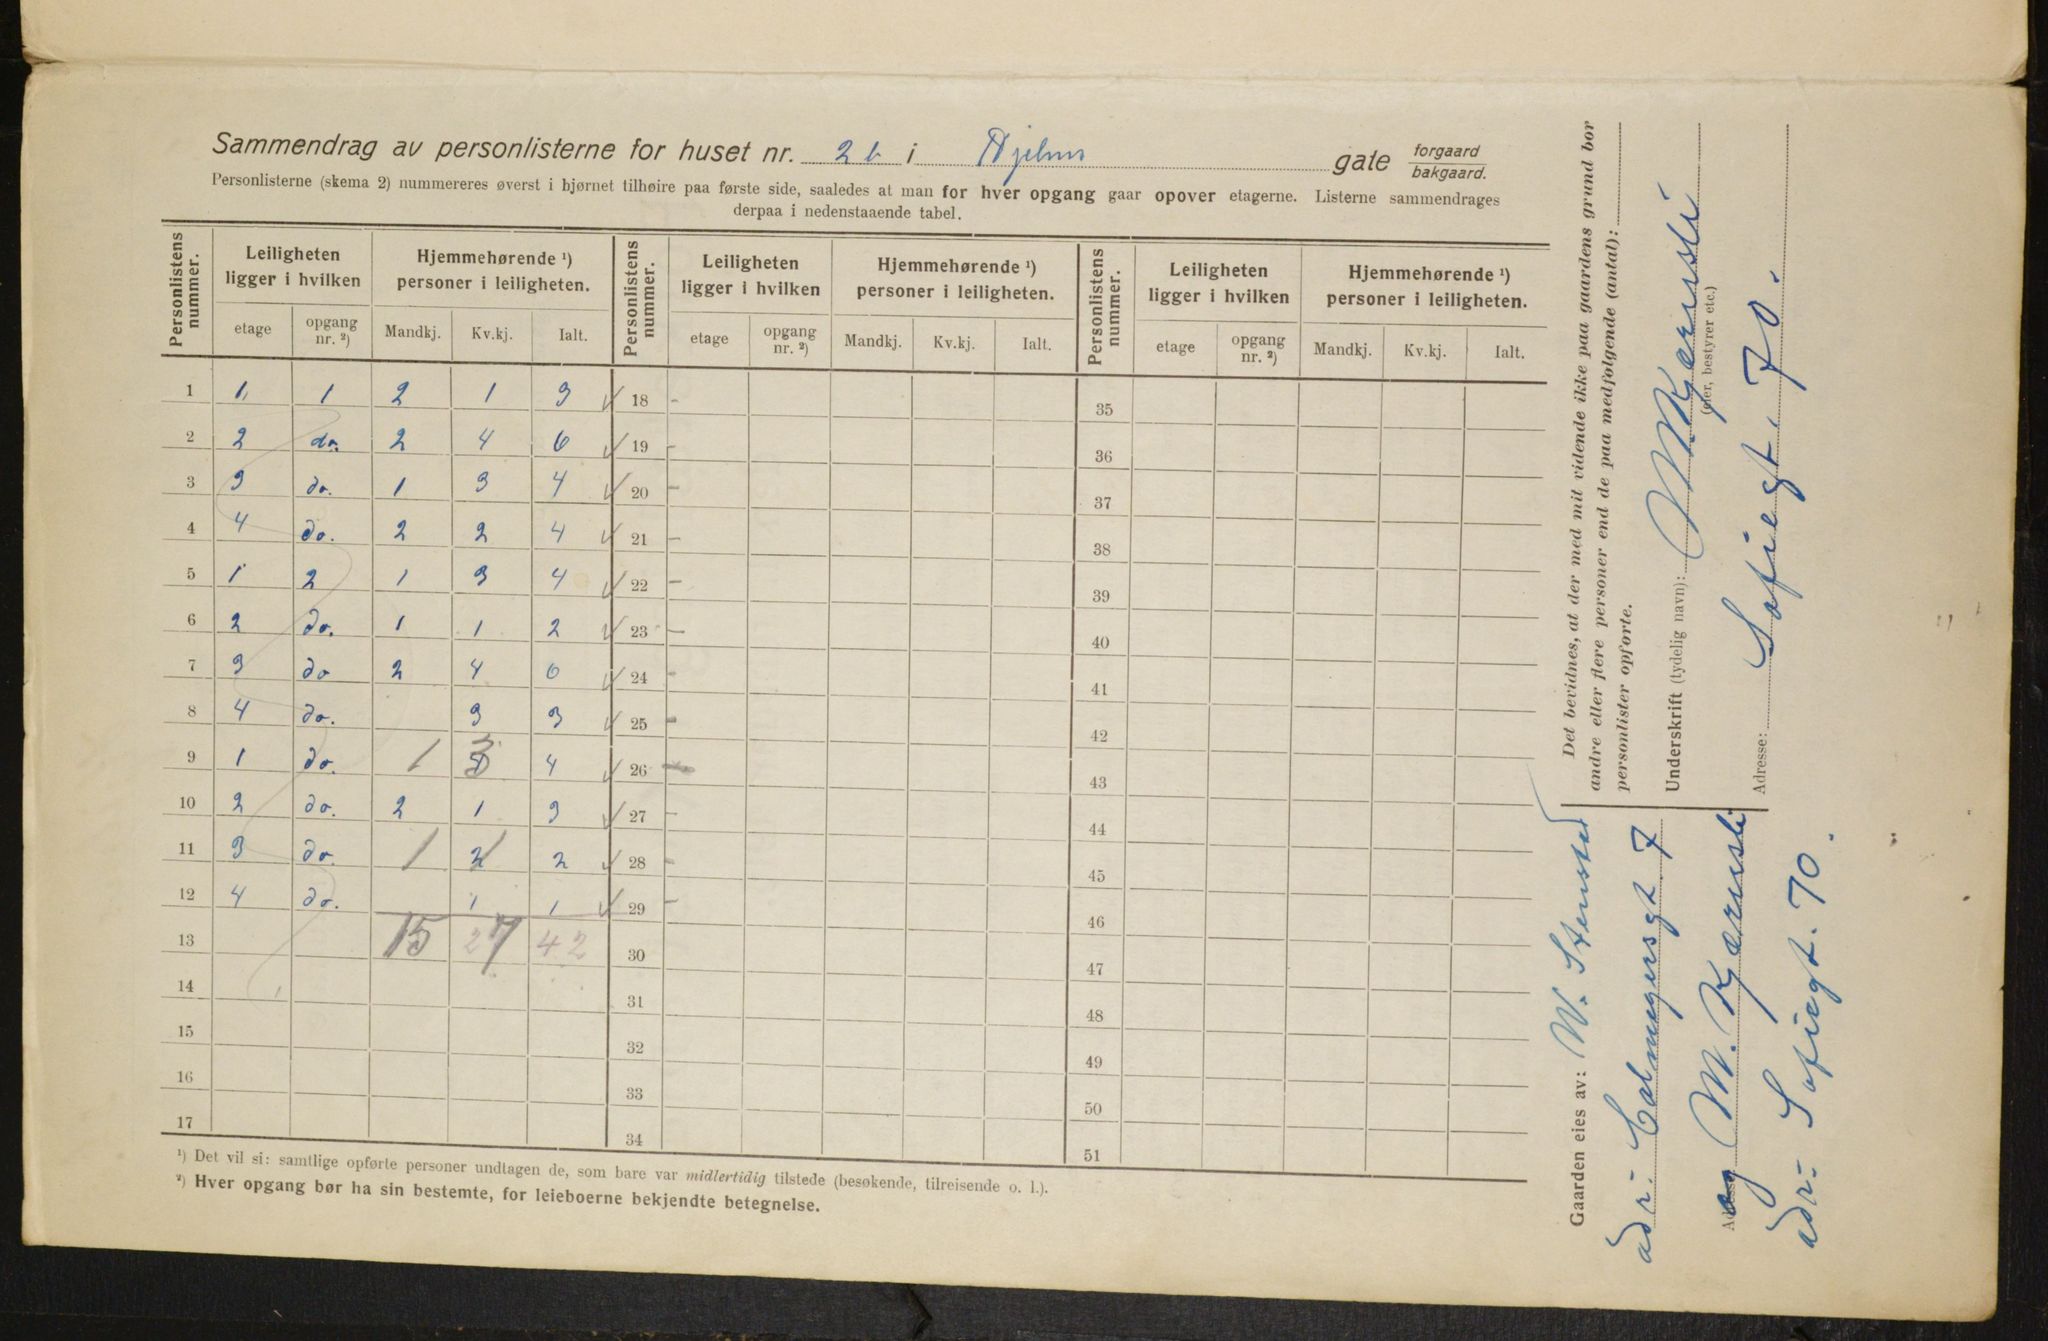 Sammendrag av personlisterne for huset nr. 2b i Hjelms gate forgaard bakgaard.
Personlisterne (skema 2) nummereres øverst i hjørnet tilhøire paa første side, saaledes at man for hver opgang gaar opover etagerne. Listerne sammendrages
derpaa i nedenstaaende tabel.
Personlistens nummer. Leiligheten ligger i hvilken Hjemmehørende ¹) personer i leiligheten. Personlistens nummer. Leiligheten ligger i hvilken Hjemmehørende ¹) personer i leiligheten. Personlistens nummer. Leiligheten ligger i hvilken Hjemmehørende ¹) personer i leiligheten.
etage opgang nr. ²) Mandkj. Kv.kj. Ialt. etage opgang nr. ²) Mandkj. Kv.kj. Ialt. etage opgang nr. ²) Mandkj. Kv.kj. Ialt.
1 1 1 2 1 3 18 35
2 2 do. 2 4 6 19 36
3 3 do. 1 3 4 20 37
4 4 do. 2 2 4 21 38
5 1 2 1 3 4 22 39
6 2 do. 1 1 2 23 40
7 3 do 2 4 6 24 41
8 4 do. 3 3 25 42
9 1 do. 1 3 4 26 43
10 2 do. 2 1 3 27 44
11 3 do. 1 1 2 28 45
12 4 do. 1 1 29 46
13 15 27 42 30 47
14 31 48
15 32 49
16 33 50
17 34 51
¹) Det vil si: samtlige opførte personer undtagen de, som bare var midlertidig tilstede (besøkende, tilreisende o. l.).
²) Hver opgang bør ha sin bestemte, for leieboerne bekjendte betegnelse.
Det bevidnes, at der med mit vidende ikke paa gaardens grund bor
andre eller flere personer end de paa medfølgende (antal):
personlister opførte.
Underskrift (tydelig navn): M. Kjærnsli
(eier, bestyrer etc.)
Adresse: Sofiegt. 70.
Gaarden eies av: W. Stensrud
adr: Colmeyersgt 7
og M. Kjærnsli
adr: Sofiegt. 70.